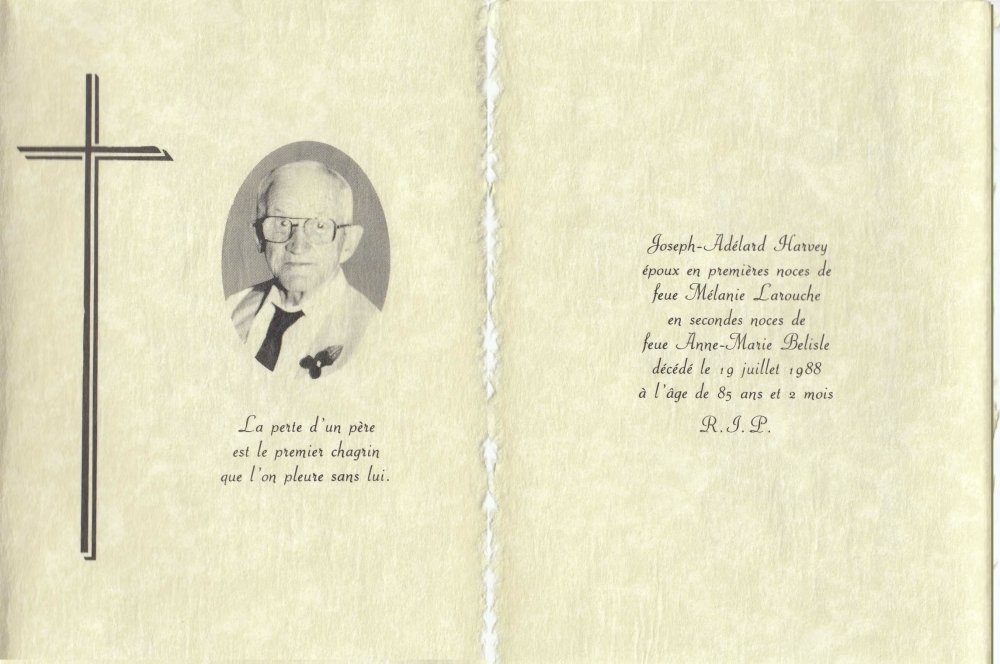 La perte d'un père
est le premier chagrin
que l'on pleure sans lui.
Joseph-Adélard Harvey
époux en premières noces de
feue Mélanie Larouche
en secondes noces de
feue Anne-Marie Belisle
décédé le 19 juillet 1988
à l'âge de 85 ans et 2 mois
R.I.P.